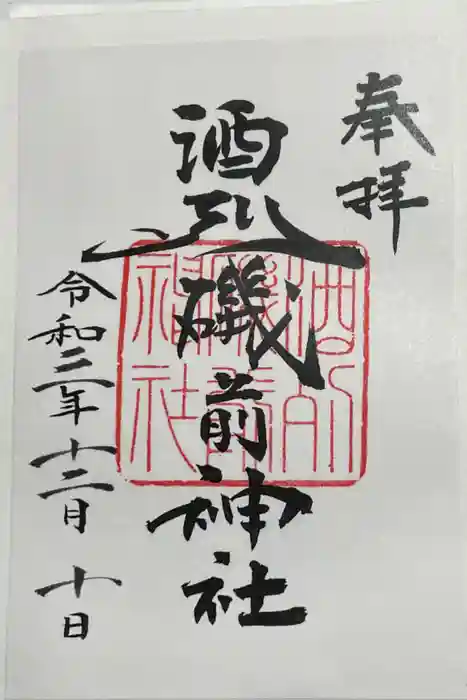 奉拝
酒列磯前神社
令和三年十二月十日
酒列
磯前
神社